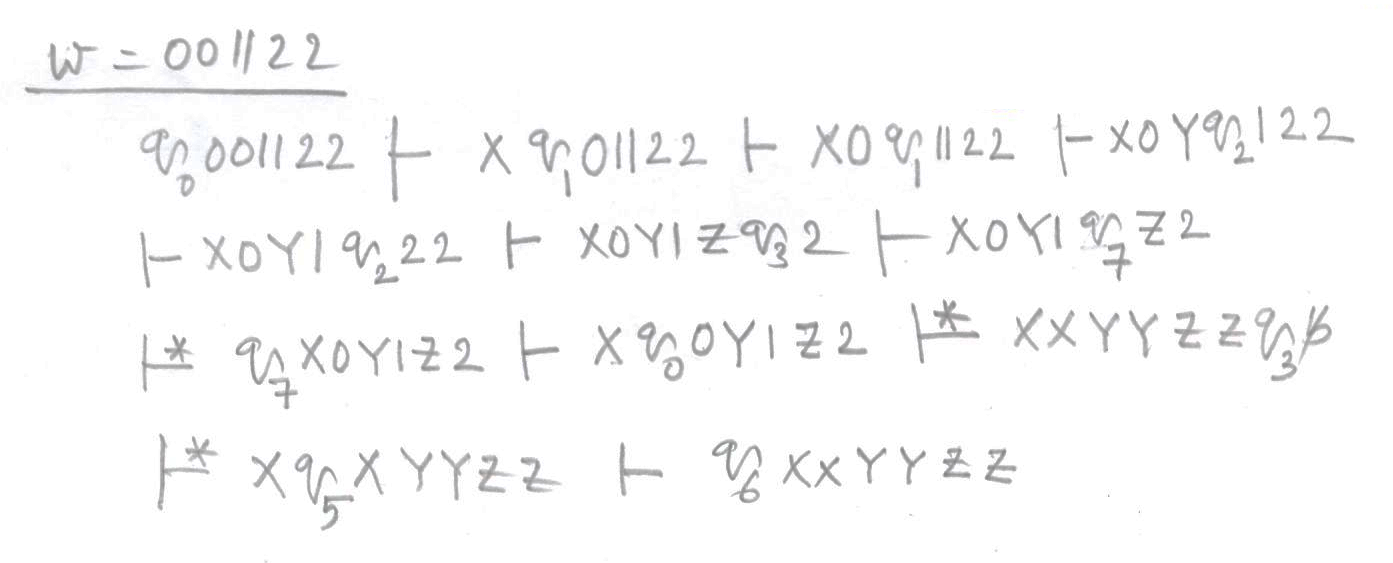 w = 001122
q₀001122 ⊢ Xq₁01122 ⊢ X0q₁1122 ⊢ X0Yq₂122
⊢ X0Y1q₂22 ⊢ X0Y1Zq₃2 ⊢ X0Y1q₇Z2
⊢* q₇X0Y1Z2 ⊢ Xq₀0Y1Z2 ⊢* XXYYZZq₃ƀ
⊢* Xq₅XYYZZ ⊢ q₆XXYYZZ